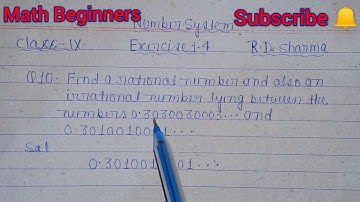 Math Beginners
Subscribe 🔔
Number System
Class-IX Exercise 1.4 R.D. Sharma
Q10. Find a rational number and also an
irrational number lying between the
numbers 0.3030030003... and
0.3010010001...
Sol
0.3010010001...